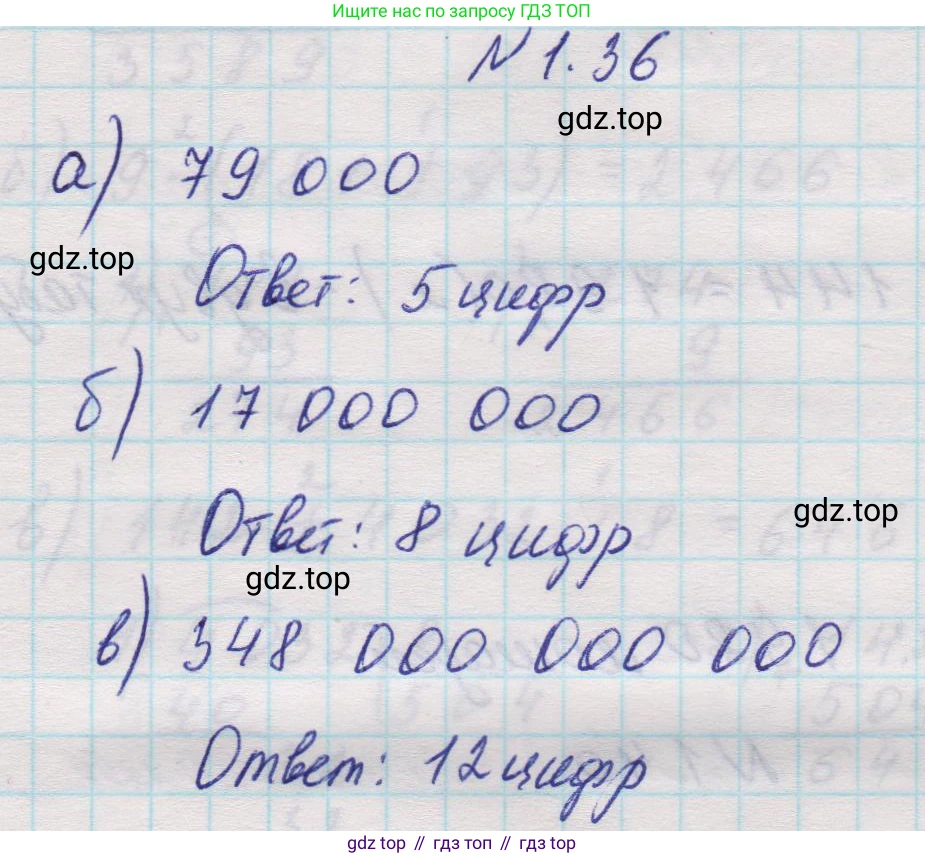 Ищите нас по запросу ГДЗ ТОП
№ 1.36
gdz.top
а) 79 000
gdz.top
Ответ: 5 цифр
б) 17 000 000
gdz.top
Ответ: 8 цифр
gdz.top
в) 348 000 000 000
Ответ: 12 цифр
gdz.top // гдз топ // гдз.top